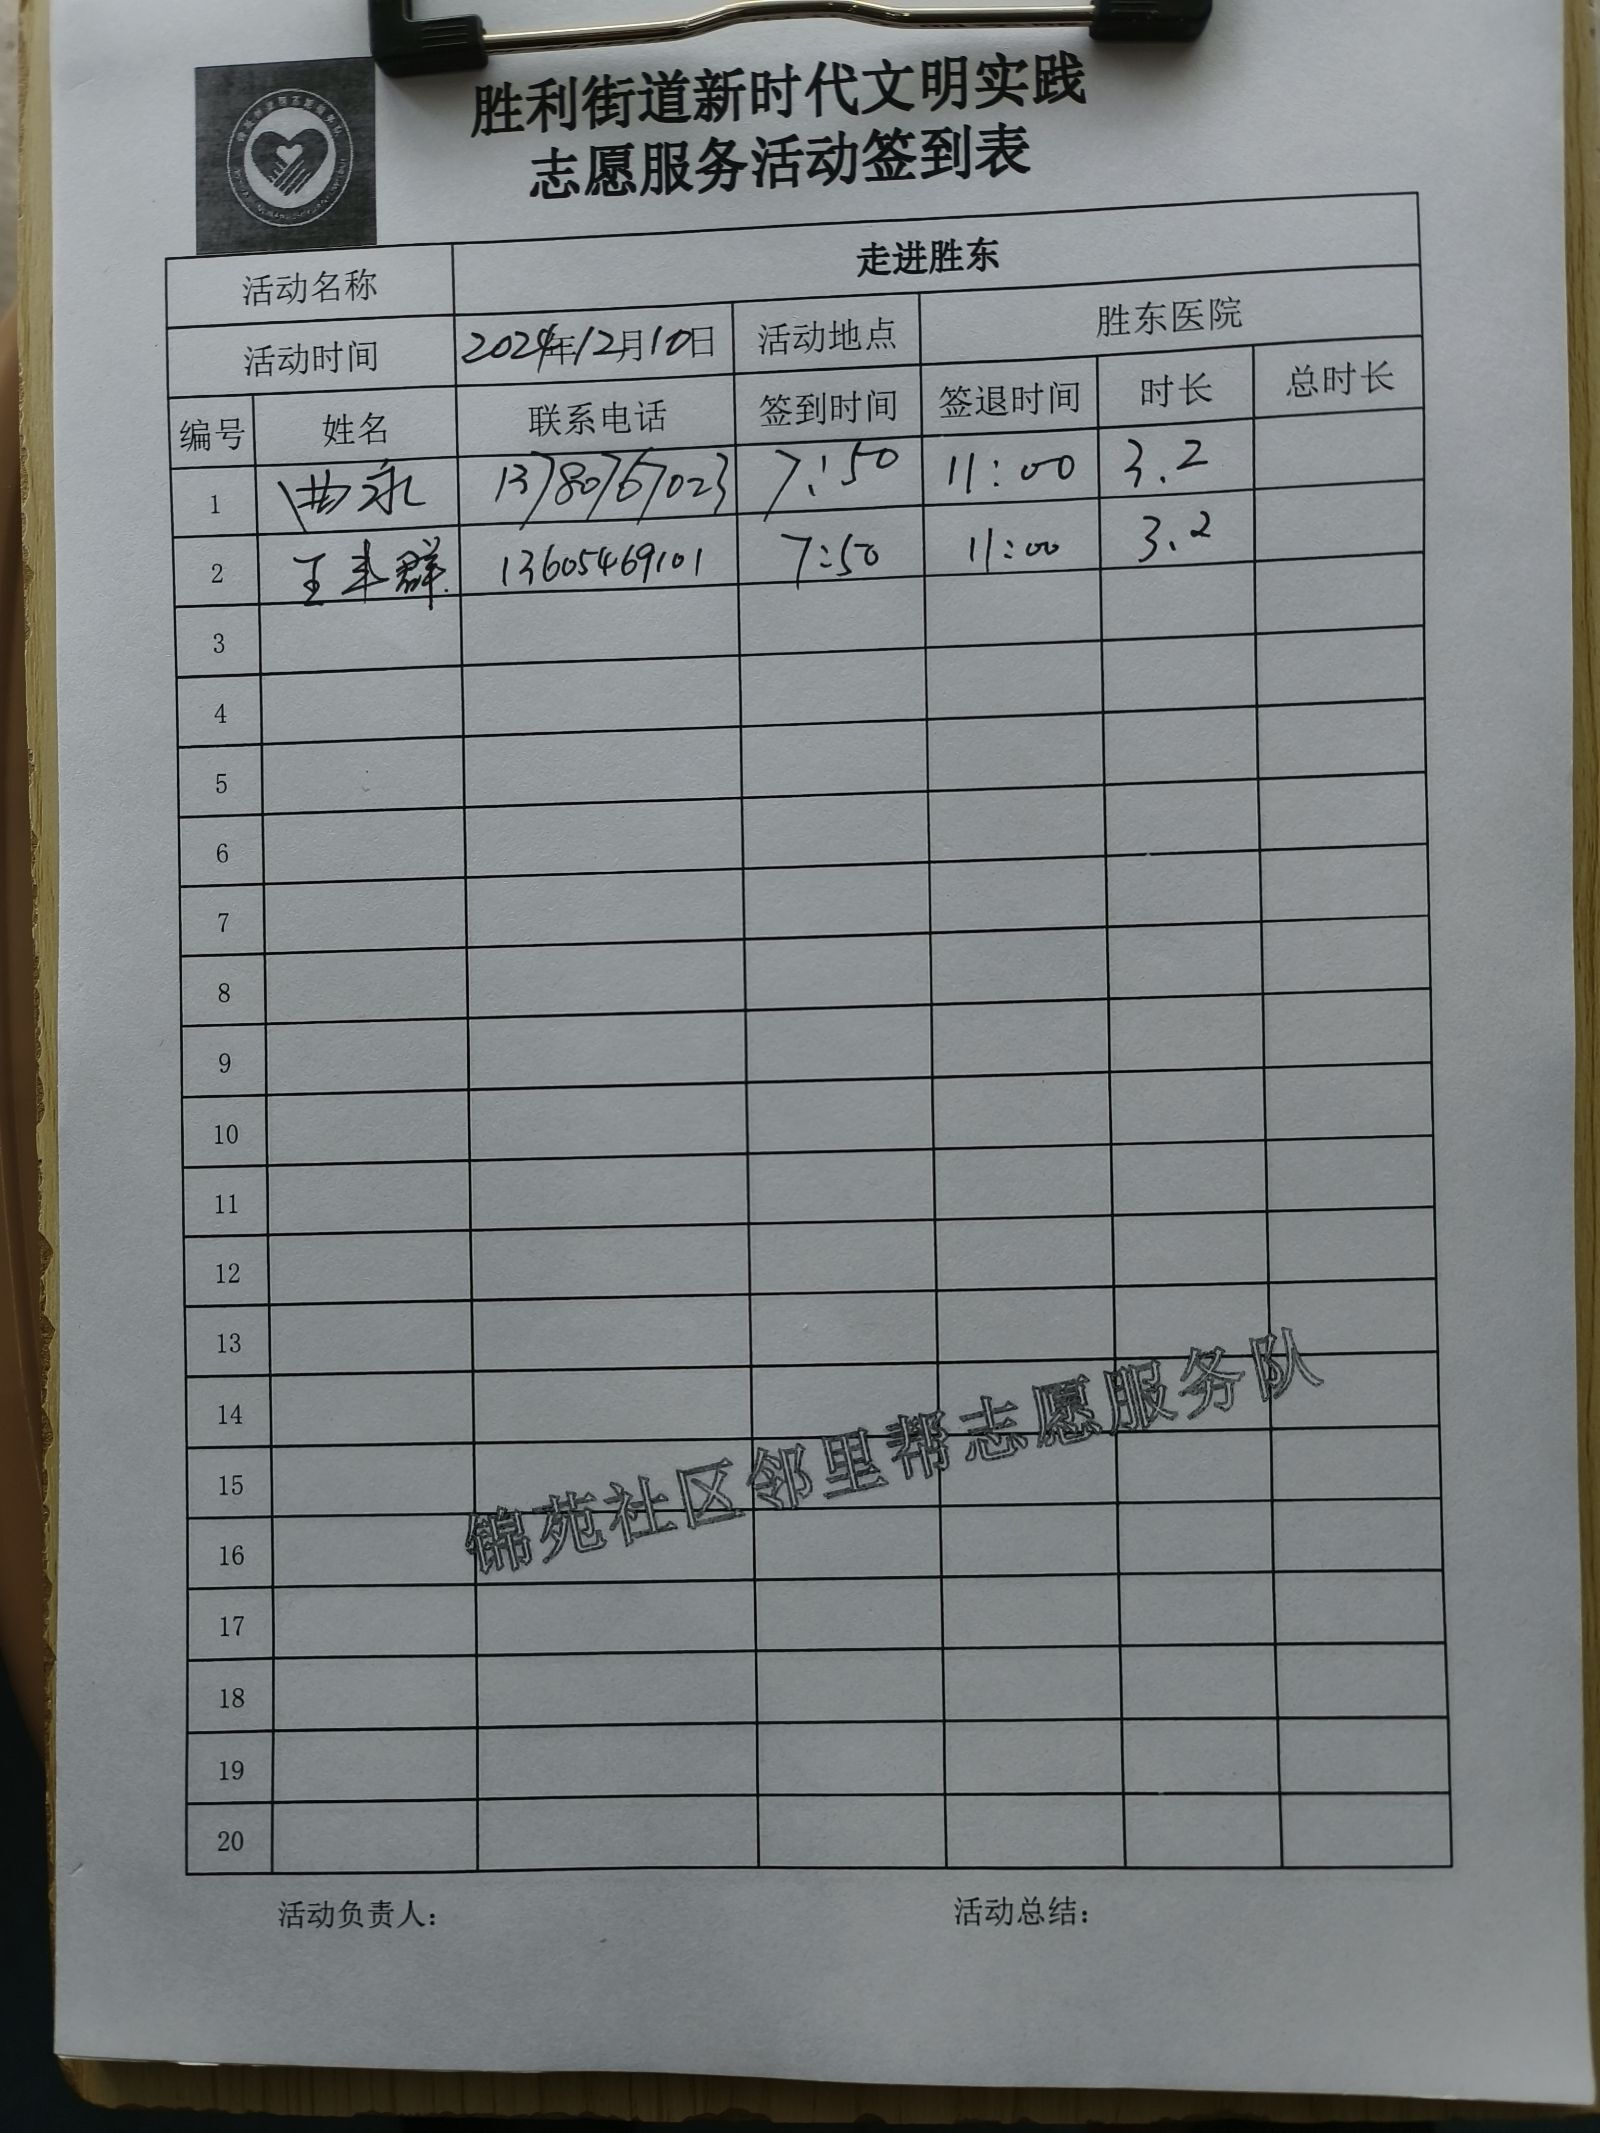 胜利街道新时代文明实践
志愿服务活动签到表
活动名称 走进胜东
活动时间 2024年12月10日 活动地点 胜东医院
编号 姓名 联系电话 签到时间 签退时间 时长 总时长
1 曲永 13780767023 7:50 11:00 3.2
2 王丰群 13605469101 7:50 11:00 3.2
3
4
5
6
7
8
9
10
11
12
13
14
15
16
17
18
19
20
锦苑社区邻里帮志愿服务队
活动负责人: 活动总结: